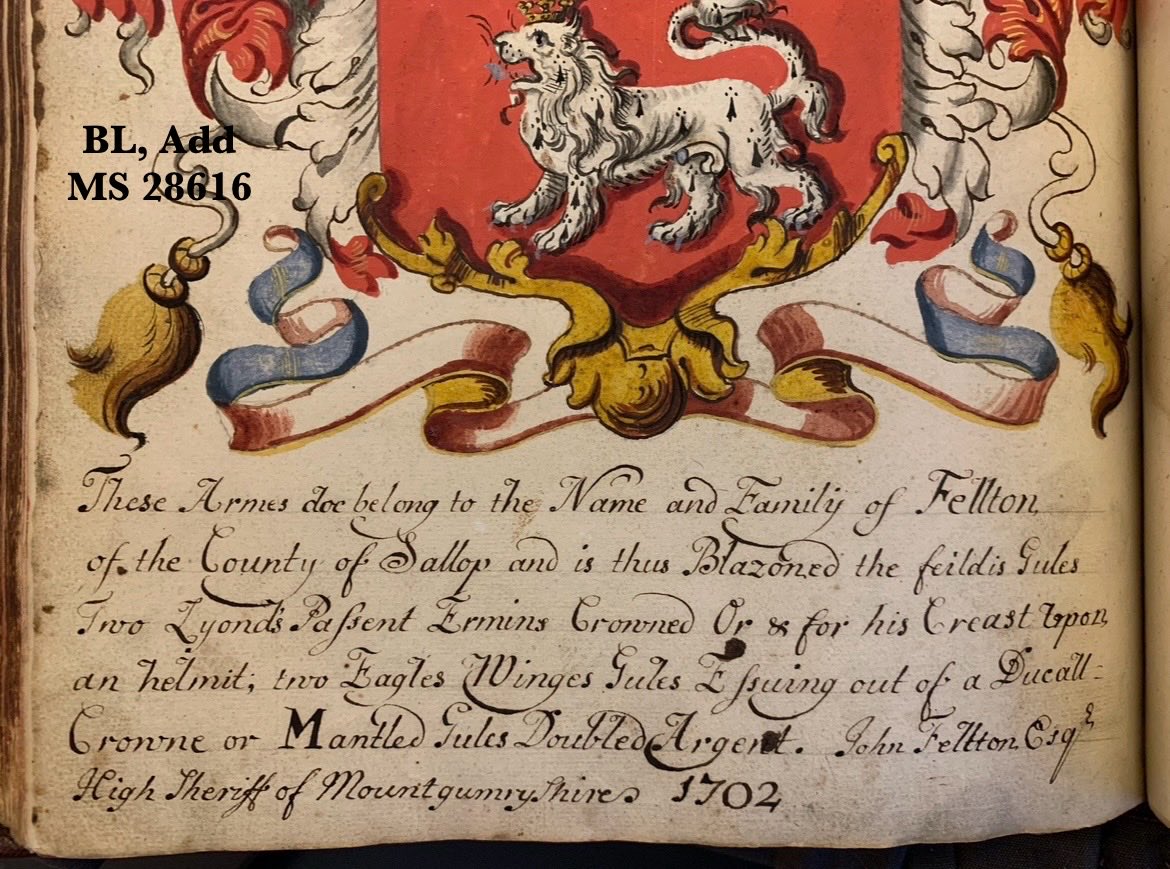 BL, Add
MS 28616
These Armes doe belong to the Name and Family of Fellton
of the County of Sallop and is thus Blazoned the feild is Gules
Two Lyonds Passent Ermins Crowned Or & for his Creast Vpon
an helmit; two Eagles Winges Gules Essuing out of a Ducall-
Crowne or Mantled Gules Doubled Argent. John Fellton Esqr
High Sheriff of Mountgumryshires 1702